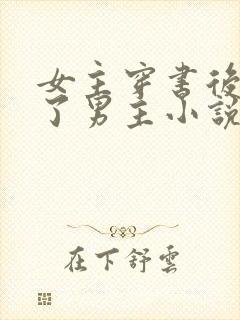 女主穿書後
了男主小說
在下舒雲